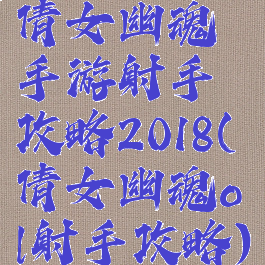 倩女幽魂
手游射手
攻略2018(
倩女幽魂。
|射手攻略)